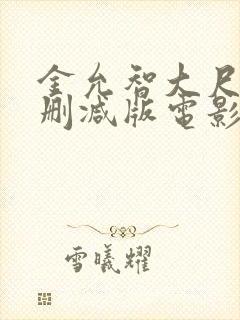 金允智大尺
删减版電影
雪曦耀